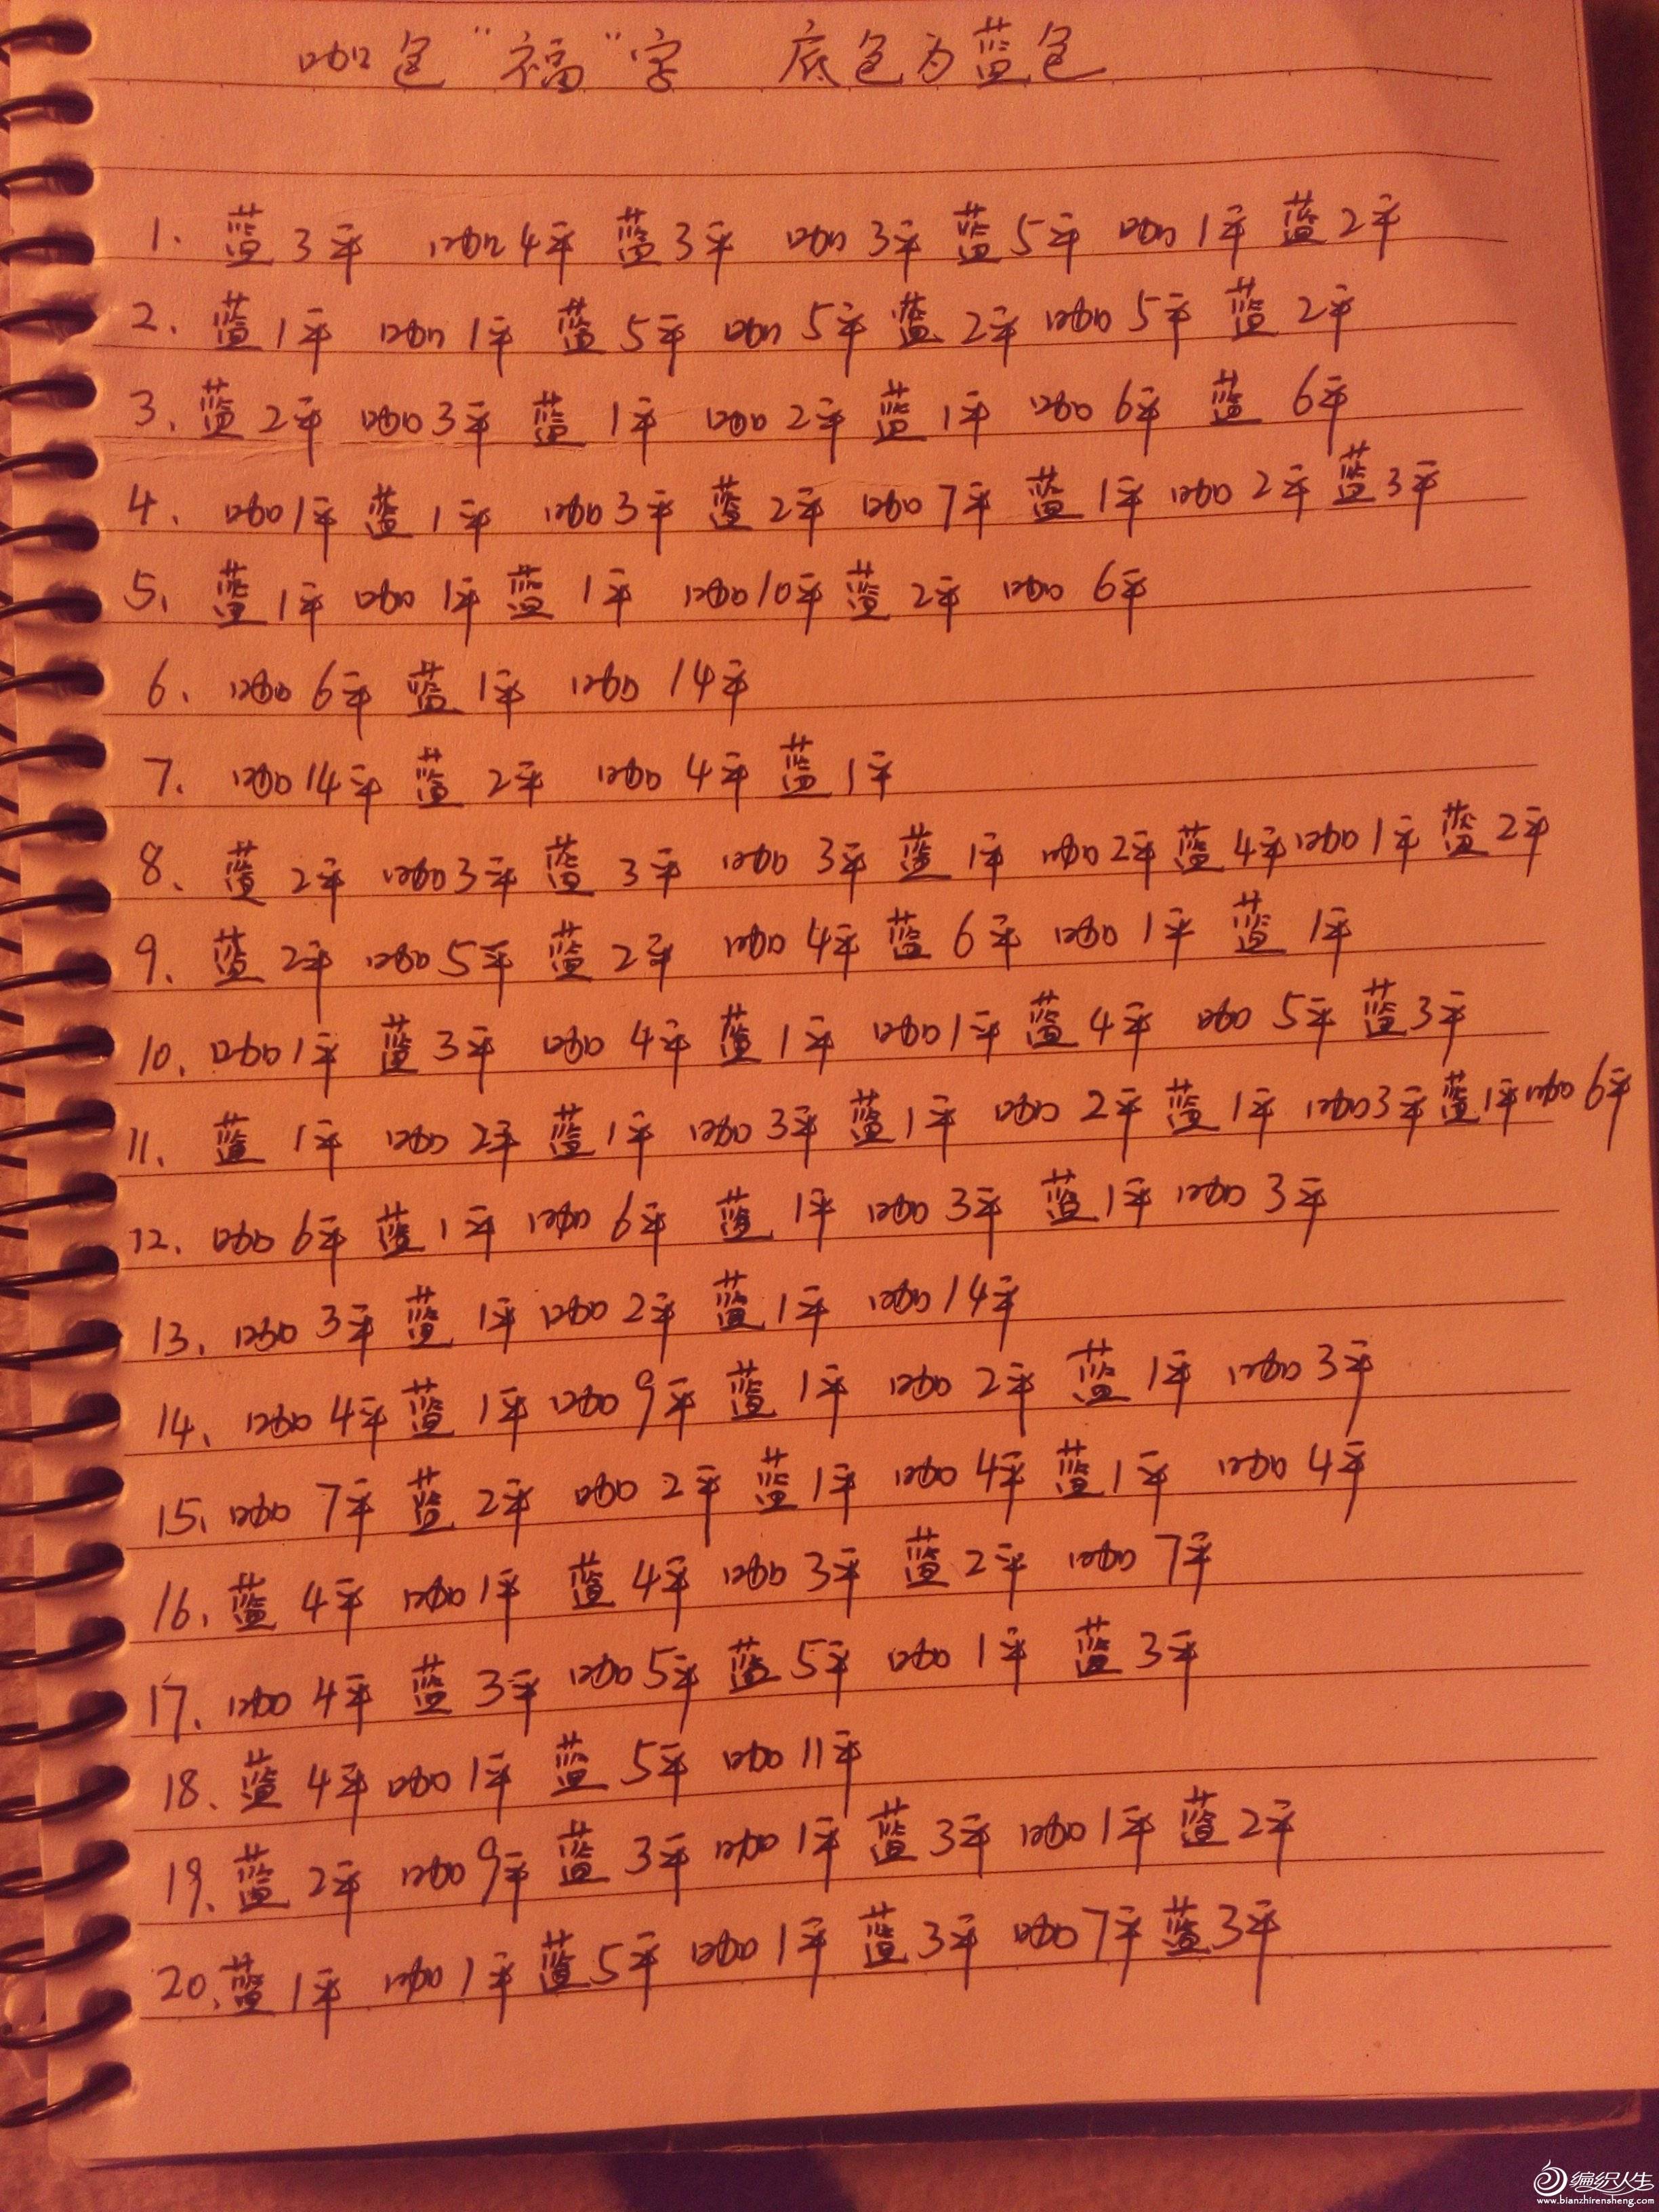 咖色“福”字 底色为蓝色
1. 蓝3平 咖4平 蓝3平 咖3平 蓝5平 咖1平 蓝2平
2. 蓝1平 咖1平 蓝5平 咖5平 蓝2平 咖5平 蓝2平
3. 蓝2平 咖3平 蓝1平 咖2平 蓝1平 咖6平 蓝6平
4. 咖1平 蓝1平 咖3平 蓝2平 咖7平 蓝1平 咖2平 蓝3平
5. 蓝1平 咖1平 蓝1平 咖10平 蓝2平 咖6平
6. 咖6平 蓝1平 咖14平
7. 咖14平 蓝2平 咖4平 蓝1平
8. 蓝2平 咖3平 蓝3平 咖3平 蓝1平 咖2平 蓝4平 咖1平 蓝2平
9. 蓝2平 咖5平 蓝2平 咖4平 蓝6平 咖1平 蓝1平
10. 咖1平 蓝3平 咖4平 蓝1平 咖1平 蓝4平 咖5平 蓝3平
11. 蓝1平 咖2平 蓝1平 咖3平 蓝1平 咖2平 蓝1平 咖3平 蓝1平 咖6平
12. 咖6平 蓝1平 咖6平 蓝1平 咖3平 蓝1平 咖3平
13. 咖3平 蓝1平 咖2平 蓝1平 咖14平
14. 咖4平 蓝1平 咖9平 蓝1平 咖2平 蓝1平 咖3平
15. 咖7平 蓝2平 咖2平 蓝1平 咖4平 蓝1平 咖4平
16. 蓝4平 咖1平 蓝4平 咖3平 蓝2平 咖7平
17. 咖4平 蓝3平 咖5平 蓝5平 咖1平 蓝3平
18. 蓝4平 咖1平 蓝5平 咖11平
19. 蓝2平 咖9平 蓝3平 咖1平 蓝3平 咖1平 蓝2平
20. 蓝1平 咖1平 蓝5平 咖1平 蓝3平 咖7平 蓝3平
编织人生
www.bianzhirensheng.com